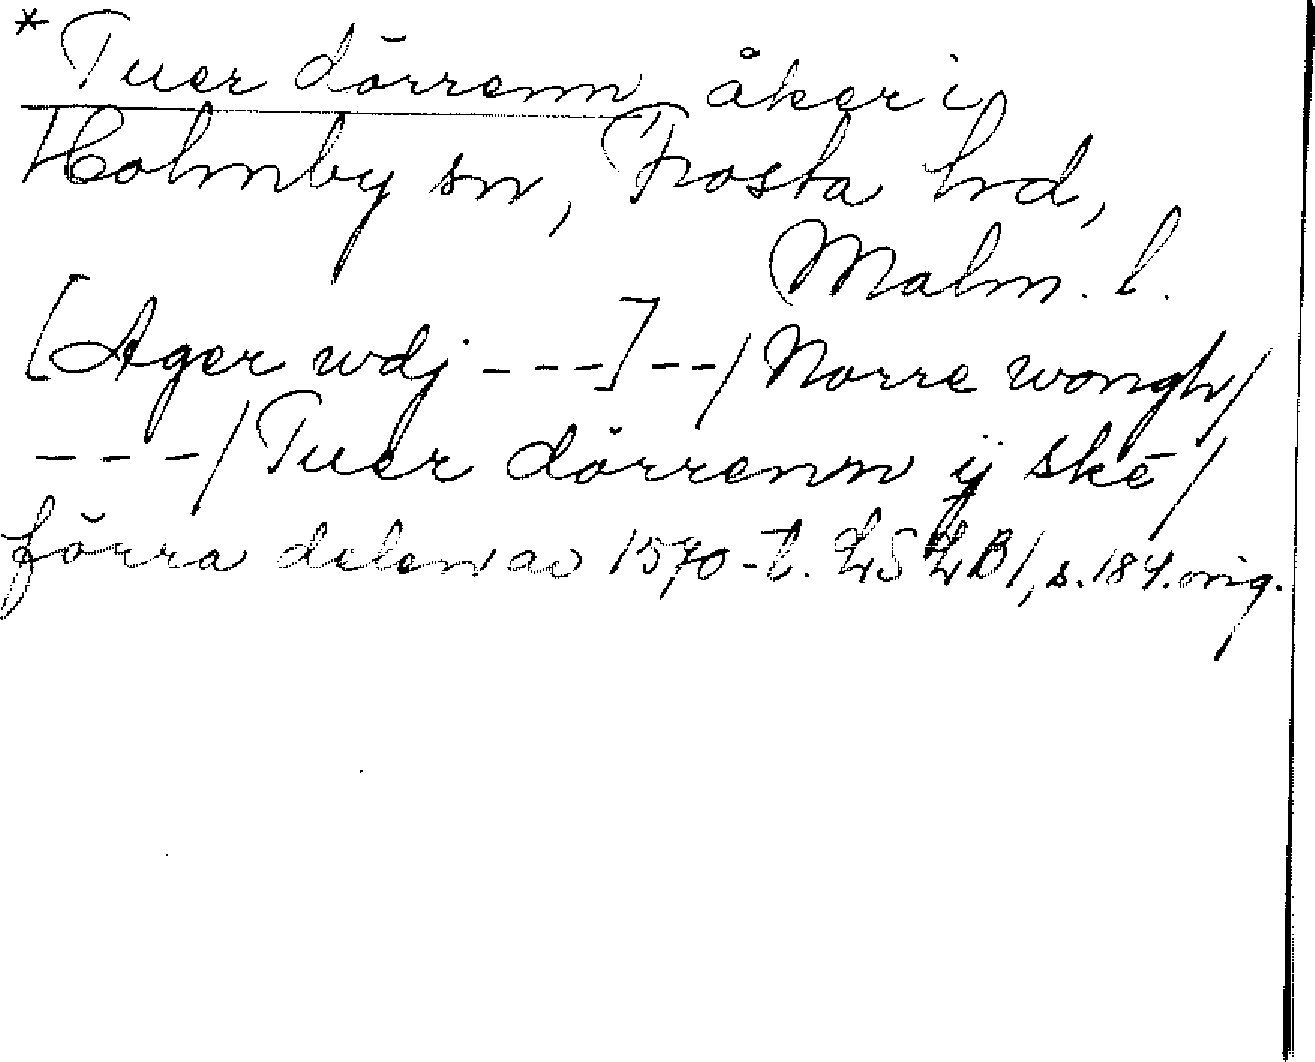 *Tuer dörrenn, åker i
Holmby sn, Frosta hd,
Malm. l.
[Ager wdj ---]--/Norre wongh/
---/Tuer dörrenn ij skē/
förra delen av 1570-t. LSLB1, s. 184. orig.